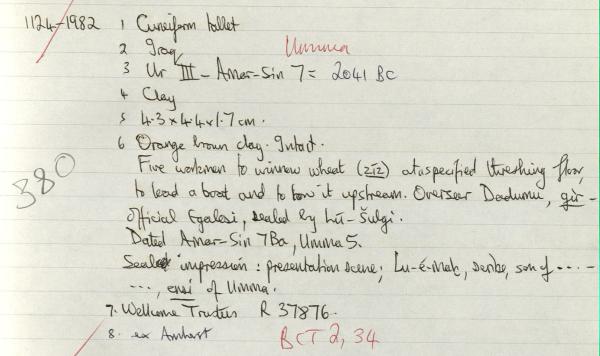 1124-1982 1 Cuneiform tablet
2 Iraq Umma
3 Ur III - Amar-Sin 7 = 2041 BC
4 Clay
5 4.3 x 4.4 x 1.7 cm.
380
6 Orange brown clay. Intact.
Five workmen to winnow wheat (zíz) at a specified threshing floor,
to load a boat and to tow it upstream. Overseer Dadumu, gìr-
official Egalesi, sealed by Lú-Šulgi.
Dated Amar-Sin 7Ba, Umma 5.
Seal impression: presentation scene; Lu-é-mah, scribe, son of .....
..., ensi of Umma.
7. Wellcome Trustees R 37876.
8. ex Amherst BCT 2, 34